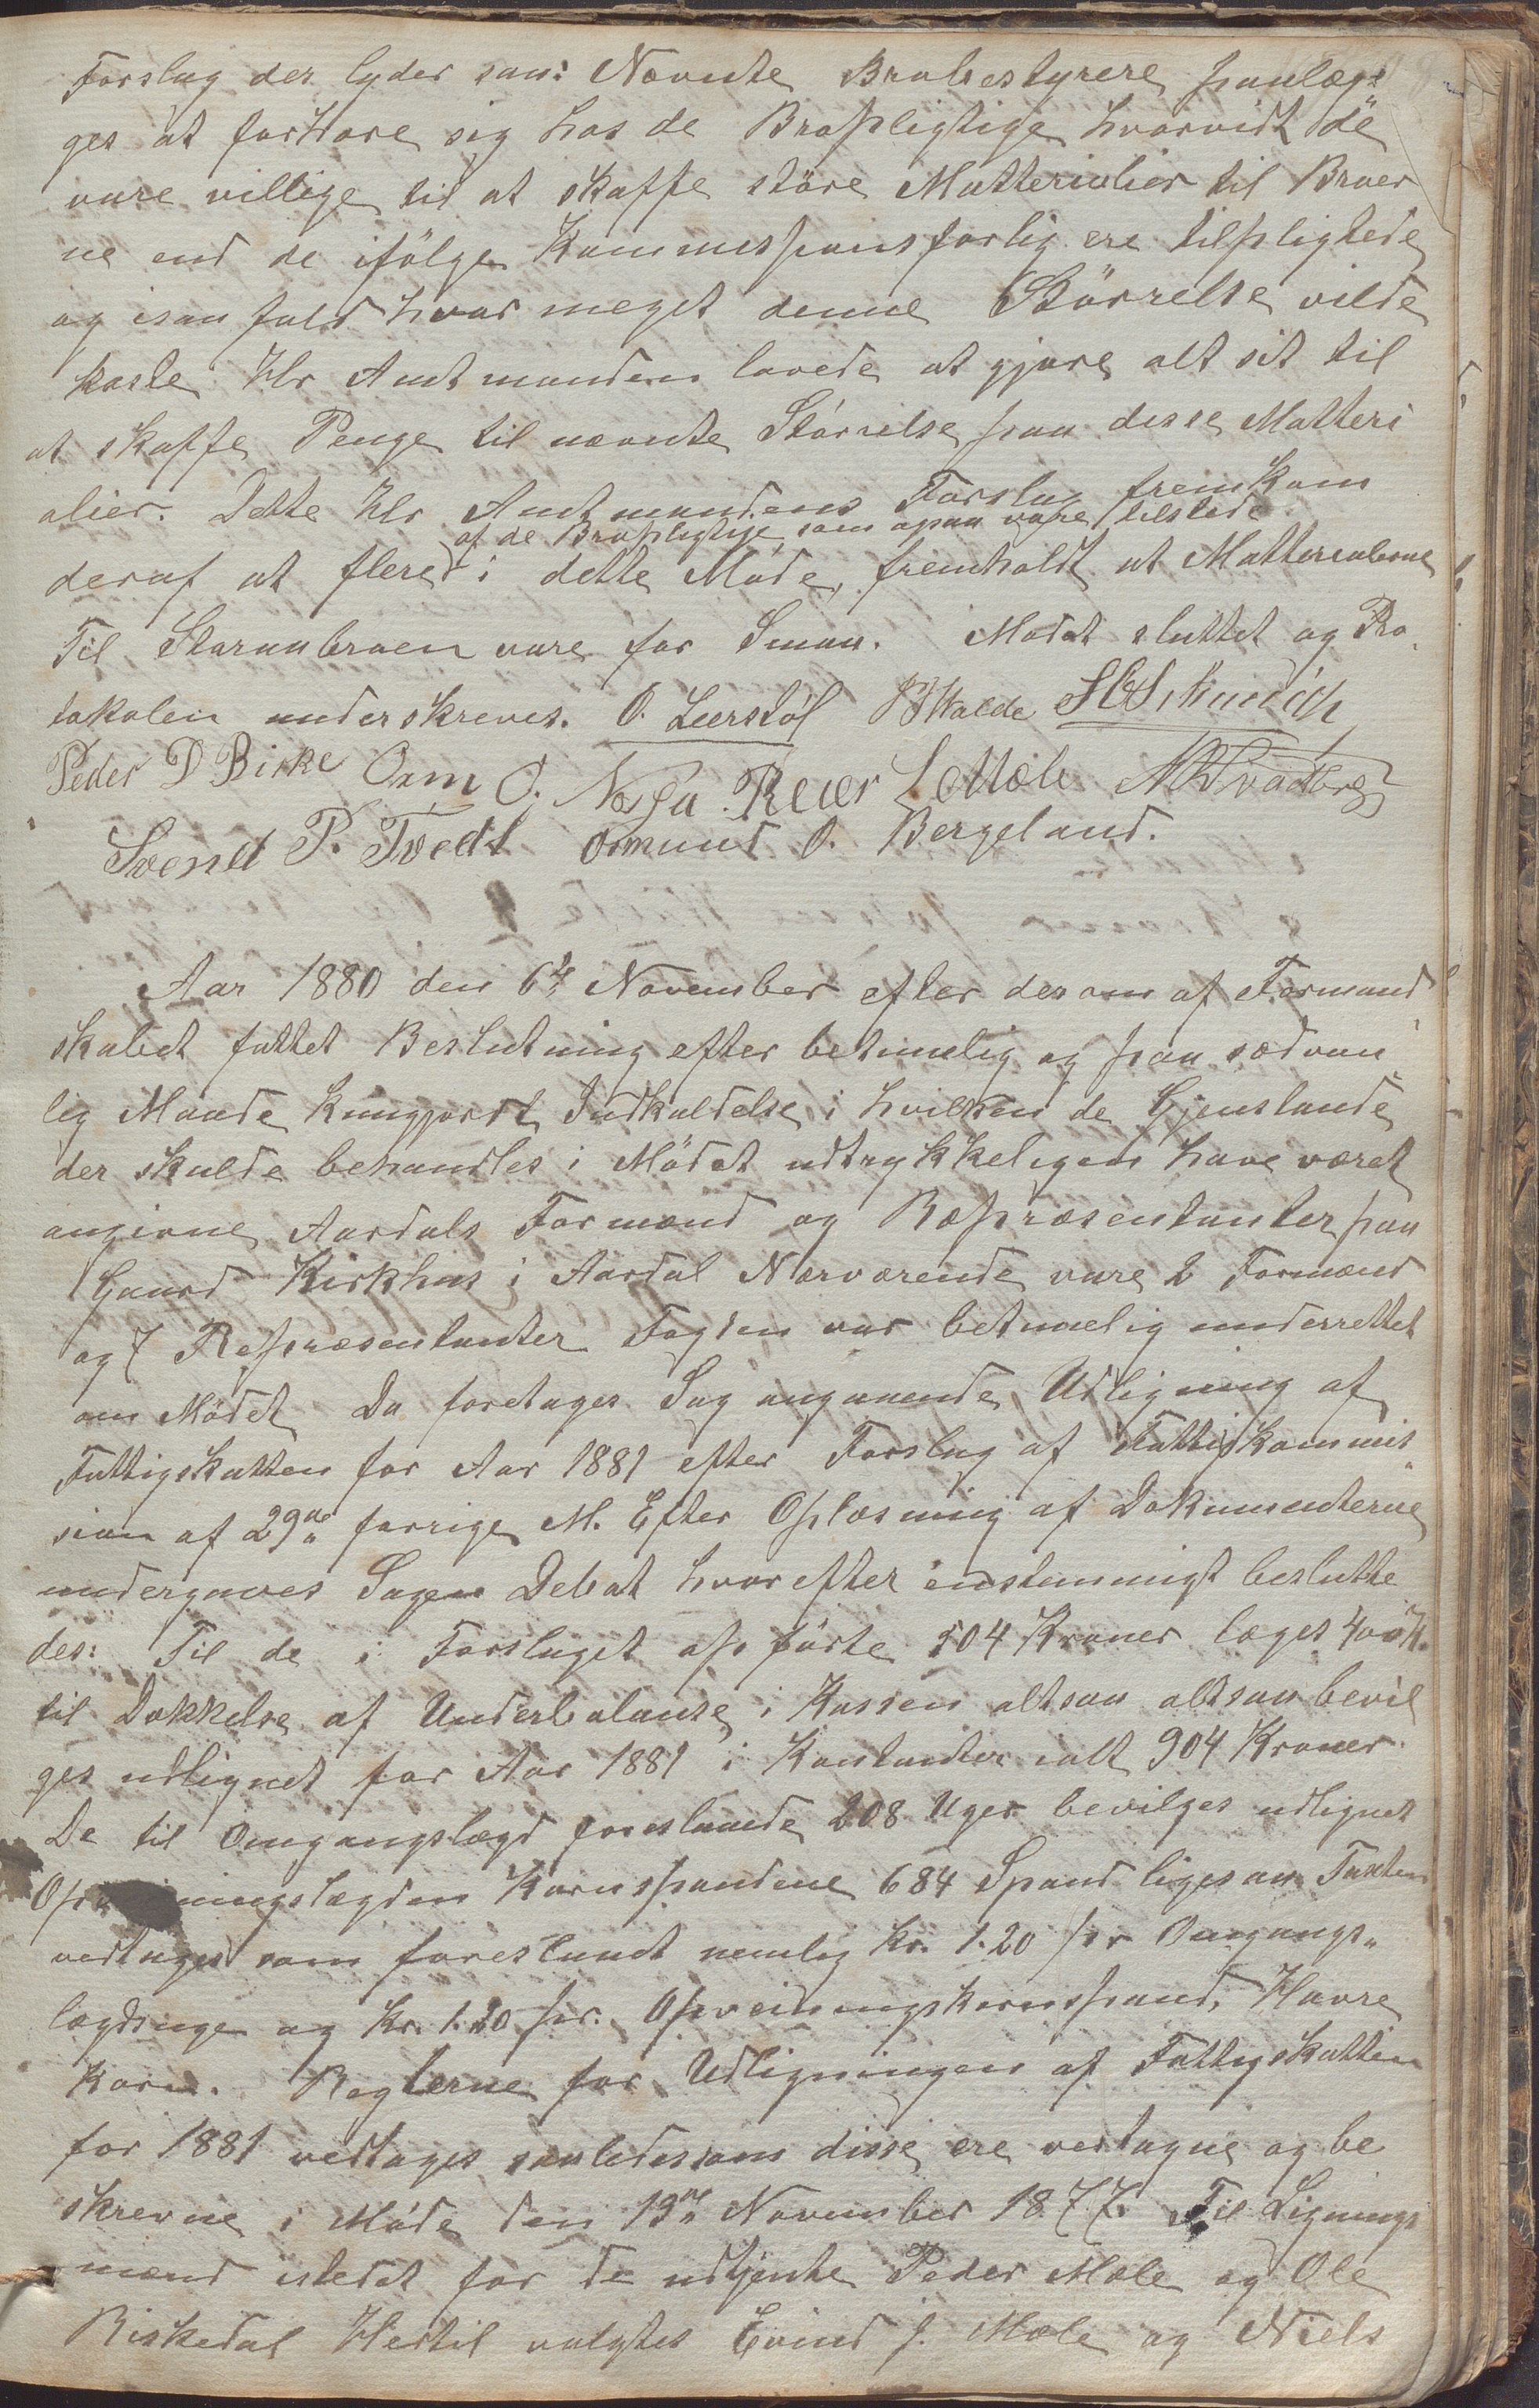 Forslag der lyder saa: Nævnte Brobestyrere paalæg-
ges at forhøre sig hos de Bropligtige hvorvidt de
vare villige til at skaffe störe Matterialier til Broer
ne end de ifölge Kommisionsforlig ere tilpligtede
og isaafald hvor meget denne Störrelse vilde
koste. Hr Amtmanden lovede at gjøre alt sit til
at skaffe Penge til nævnte Störrelse paa disse Matteri
alier. Dette Hr Amtmandens Forslag fremkom
af de Bropligtige, som ogsaa vare tilstede
deraf at flere i dette Møde, fremholdt at Matterialerne
Til Storaabroen vare for Smaa. Mødet sluttet og Pro
tokolen underskreves. O. Leerstöl
Peder D Birke Orm O. Nesja. Reier L Mæle
Svend P. Tvedt Osmund O. Bergeland.
Aar 1880 den 6te November efter derom af Formand
skabet fattet Beslutning efter betimelig og paa sædvan
lig Maade kungjordt Indkaldelse i hvilken de Gjenstande
der skulde behandles i Mödet udtrykkeligen have været
angivne Aardals Formænd og Ræpræsentanter paa
Gaard Kirkhus i Aardal Nærværende vare 2 Formænd
og 7 Repræsentanter Fogden var betimelig underrettet
om Mödet Da foretages Sag angaaende Udligning af
Fattigskatten for Aar 1881 efter Forslag af Fattigkommis
sion af 29de forrige M. Efter Oplæsning af Dokumenterne
undergaves Sagen Debat hvorefter enstemmigt beslutte
des: Til de i Forslaget opförte 504 Kroner læges 400 K.
til Dækkelse af Underbalanse i Kassen altsaa altsaa bevil
ges udlignet for Aar 1881 i Kontanter ialt 904 Kroner.
De til Omgangslægd foreslaaede 208 Uger bevilges udlignet
Kornspandene 684 Spand ligesaa Taxten
vedtages som foreslaaet nemlig Kr. 1.20 pr Omgangs„
lægdsuge og Kr. 1.20 pr. Opveiningskornspand, Havre
korn. Reglerne for Udligningen af Fattigskatten
for 1881 vedtages saaledes som disse ere vedtagne og be
skrevne i Møde den 13de November 1877. Til Lignings
mænd istedet for de udtjente Peder Mæle og Ole
Riskedal Hertil valgtes Eivind J. Mæle og Niels